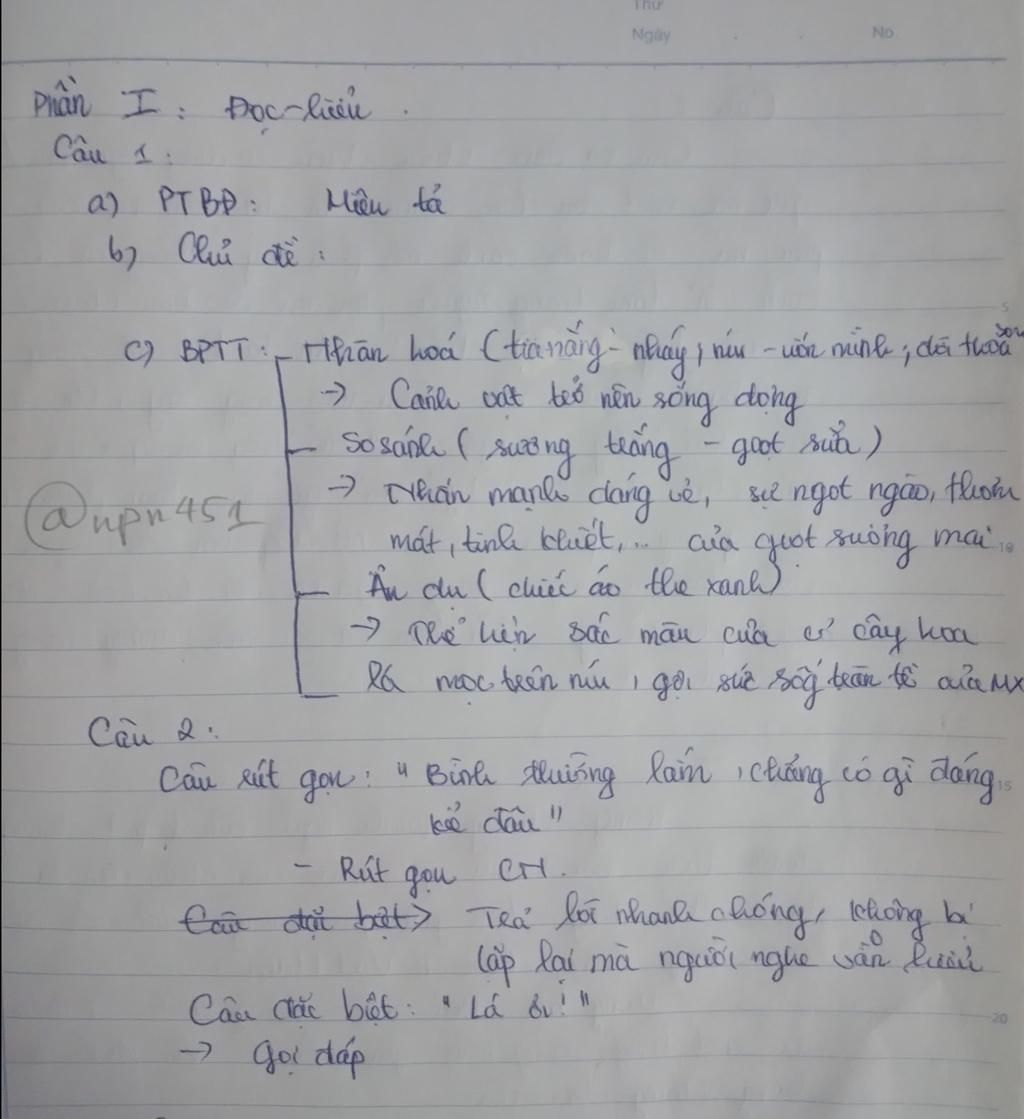 Thứ
Ngày . . No.
Phần I : Đọc-hiểu .
Câu 1 :
a) PTBĐ : Miêu tả
b) Chủ đề :
5
c) BPTT : - Nhân hoá (tia nắng - nháy, núi - uốn mình, đồi thoa son
→ Cảnh vật trở nên sống động
- So sánh ( sương trắng - giọt sữa )
→ Nhấn mạnh dáng vẻ, sự ngọt ngào, thơm
@npn451
mát, tinh khiết,... của giọt sương mai. 10
- Ẩn dụ ( chiếc áo the xanh)
→ Thể hiện sắc màu của cỏ cây hoa
lá mọc trên núi, gợi sức sống tràn trề của MX
Câu 2 :
Câu rút gọn : " Bình thường lắm, chẳng có gì đáng 15
kể đâu "
- Rút gọn CN.
Câu đặc biệt → Trả lời nhanh chóng, không bị
lặp lại mà người nghe vẫn hiểu
Câu đặc biệt : " Lá ơi ! "
20
→ Gọi đáp